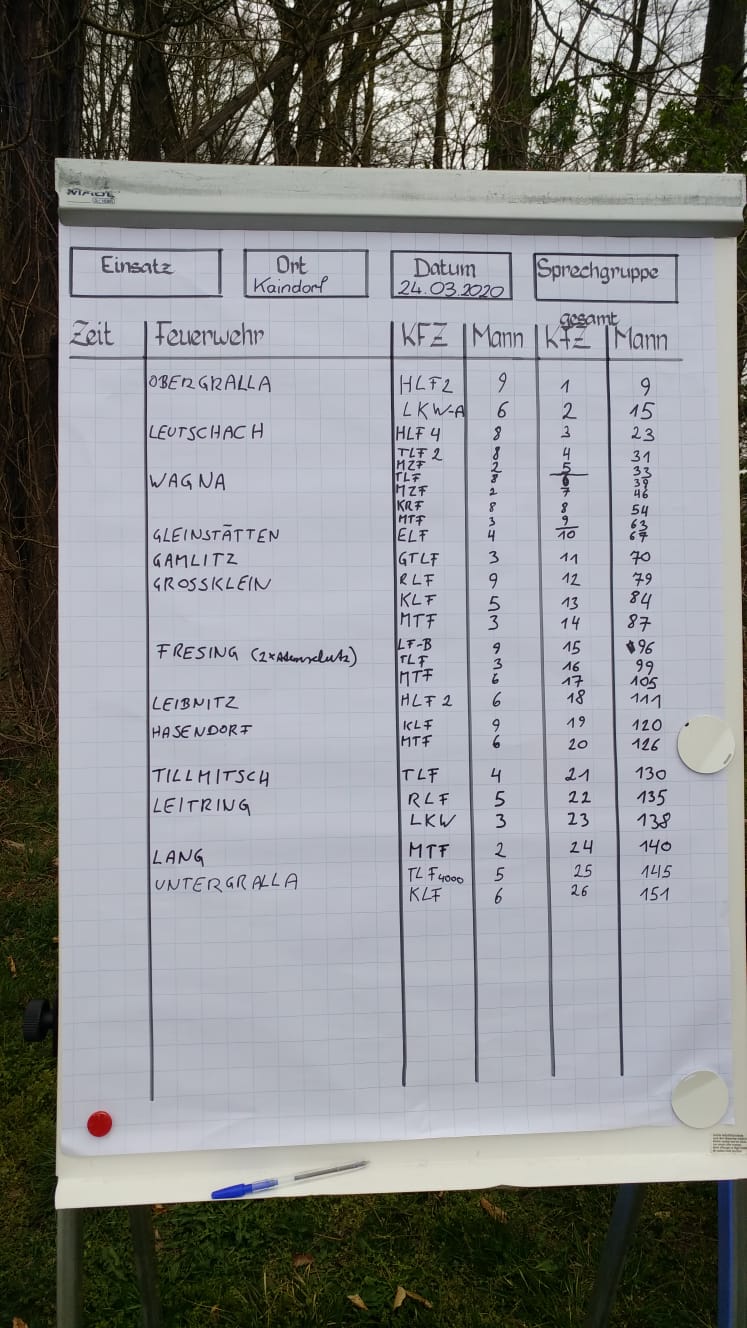 MAUL
Einsatz Ort Datum Sprechgruppe
Kaindorf 24.03.2020
gesamt
Zeit Feuerwehr KFZ Mann KfZ Mann
OBERGRALLA HLF2 9 1 9
LKW-A 6 2 15
LEUTSCHACH HLF 4 8 3 23
TLF 2 8 4 31
MZF 2 5 33
WAGNA TLF 8 6 39
MZF 2 7 46
KRF 8 8 54
MTF 3 9 63
GLEINSTÄTTEN ELF 4 10 67
GAMLITZ GTLF 3 11 70
GROSSKLEIN RLF 9 12 79
KLF 5 13 84
MTF 3 14 87
FRESING (2xAtemschutz) LF-B 9 15 96
TLF 3 16 99
MTF 6 17 105
LEIBNITZ HLF 2 6 18 111
HASENDORF KLF 9 19 120
MTF 6 20 126
TILLMITSCH TLF 4 21 130
LEITRING RLF 5 22 135
LKW 3 23 138
LANG MTF 2 24 140
UNTERGRALLA TLF 4000 5 25 145
KLF 6 26 151